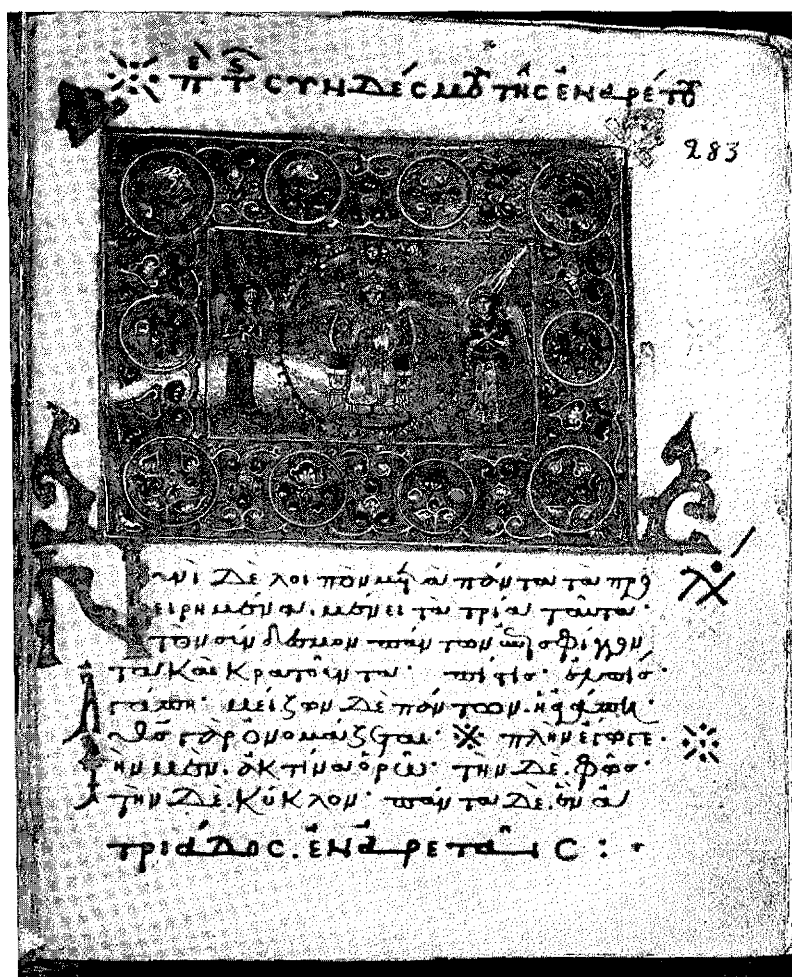 π τ συνδέσμου τῆς ἐναρέτου
283
Νυνὶ δὲ λοιπὸν μετὰ πάντα τὰ προ
ειρημένα. μένει τὰ τρία ταῦτα·
τὸν σύνδεσμον πάντων ἐπισφίγγον
τα καὶ κρατοῦντα· πίστις· ἐλπίς·
ἀγάπη· μείζων δὲ πάντων. ἡ ἀγάπη·
θς γὰρ ὀνομάζεται· πλὴν ἔγωγε·
τὴν μὲν. ἀκτῖνα ὁρῶ· τὴν δὲ. φῶς·
τὴν δὲ. κύκλον· πάντα δὲ. ἓν ἀ
τριάδος. ἐν ἀρεταῖς :·